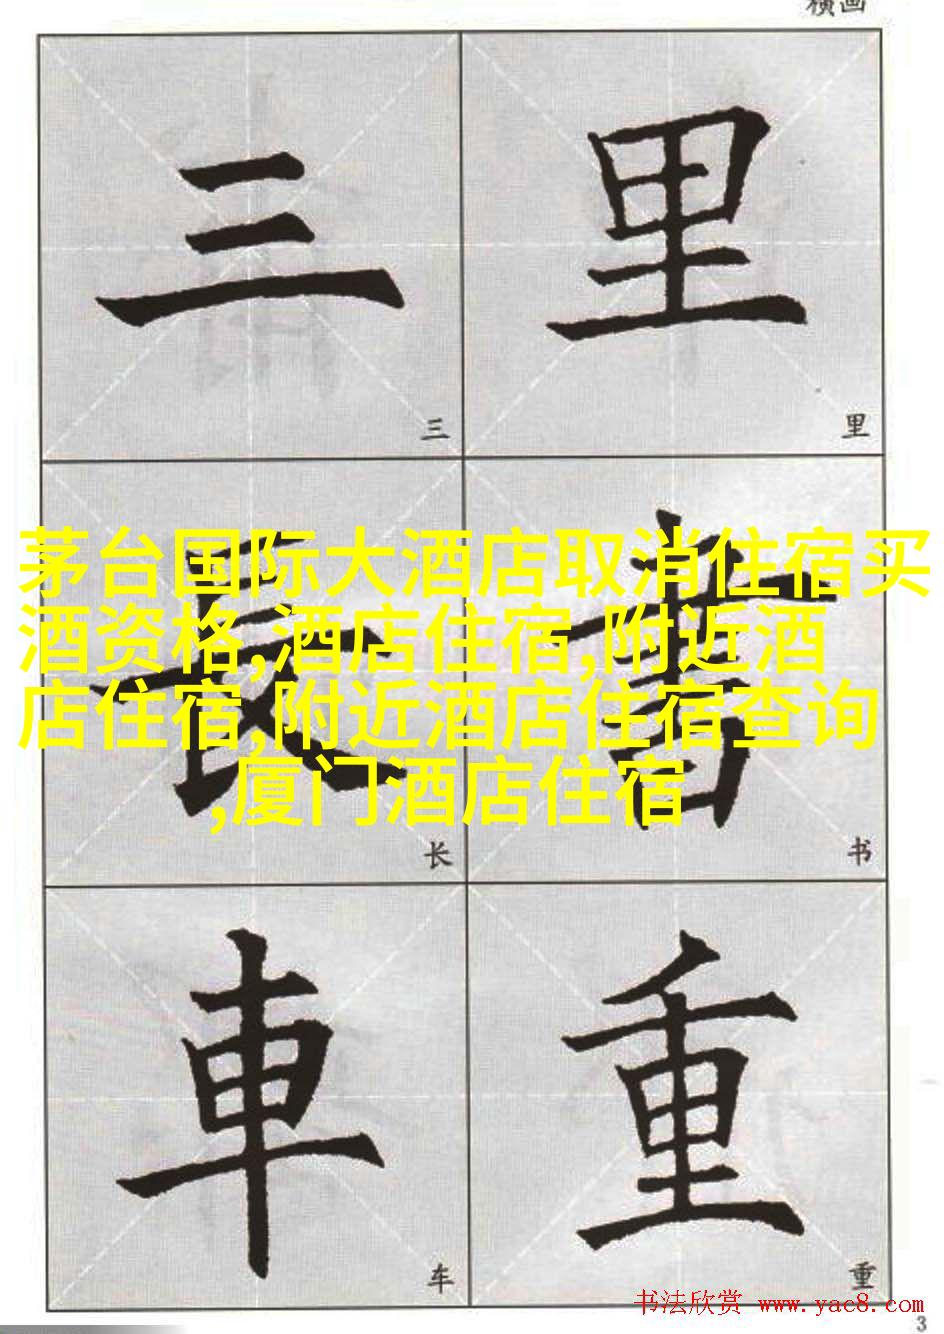 横画
三 里
三 里
茅台国际大酒店取消住宿买
酒资格,酒店住宿,附近酒
店住宿,附近酒店住宿查询
,厦门酒店住宿
長 書
长 书
車 重
车 重
书法欣赏 www.yac8.com
3